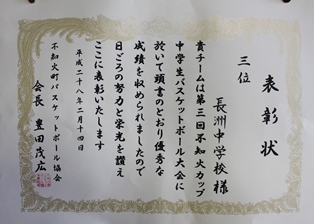 表彰状
三位
長洲中学校様
貴チームは第三回不知火カップ
中学生バスケットボール大会に
於いて頭書のとおり優秀な
成績を収められましたので
日ごろの努力と栄光を讃え
ここに表彰いたします
平成二十八年二月十四日
不知火町バスケットボール協会
会長 豊田茂広